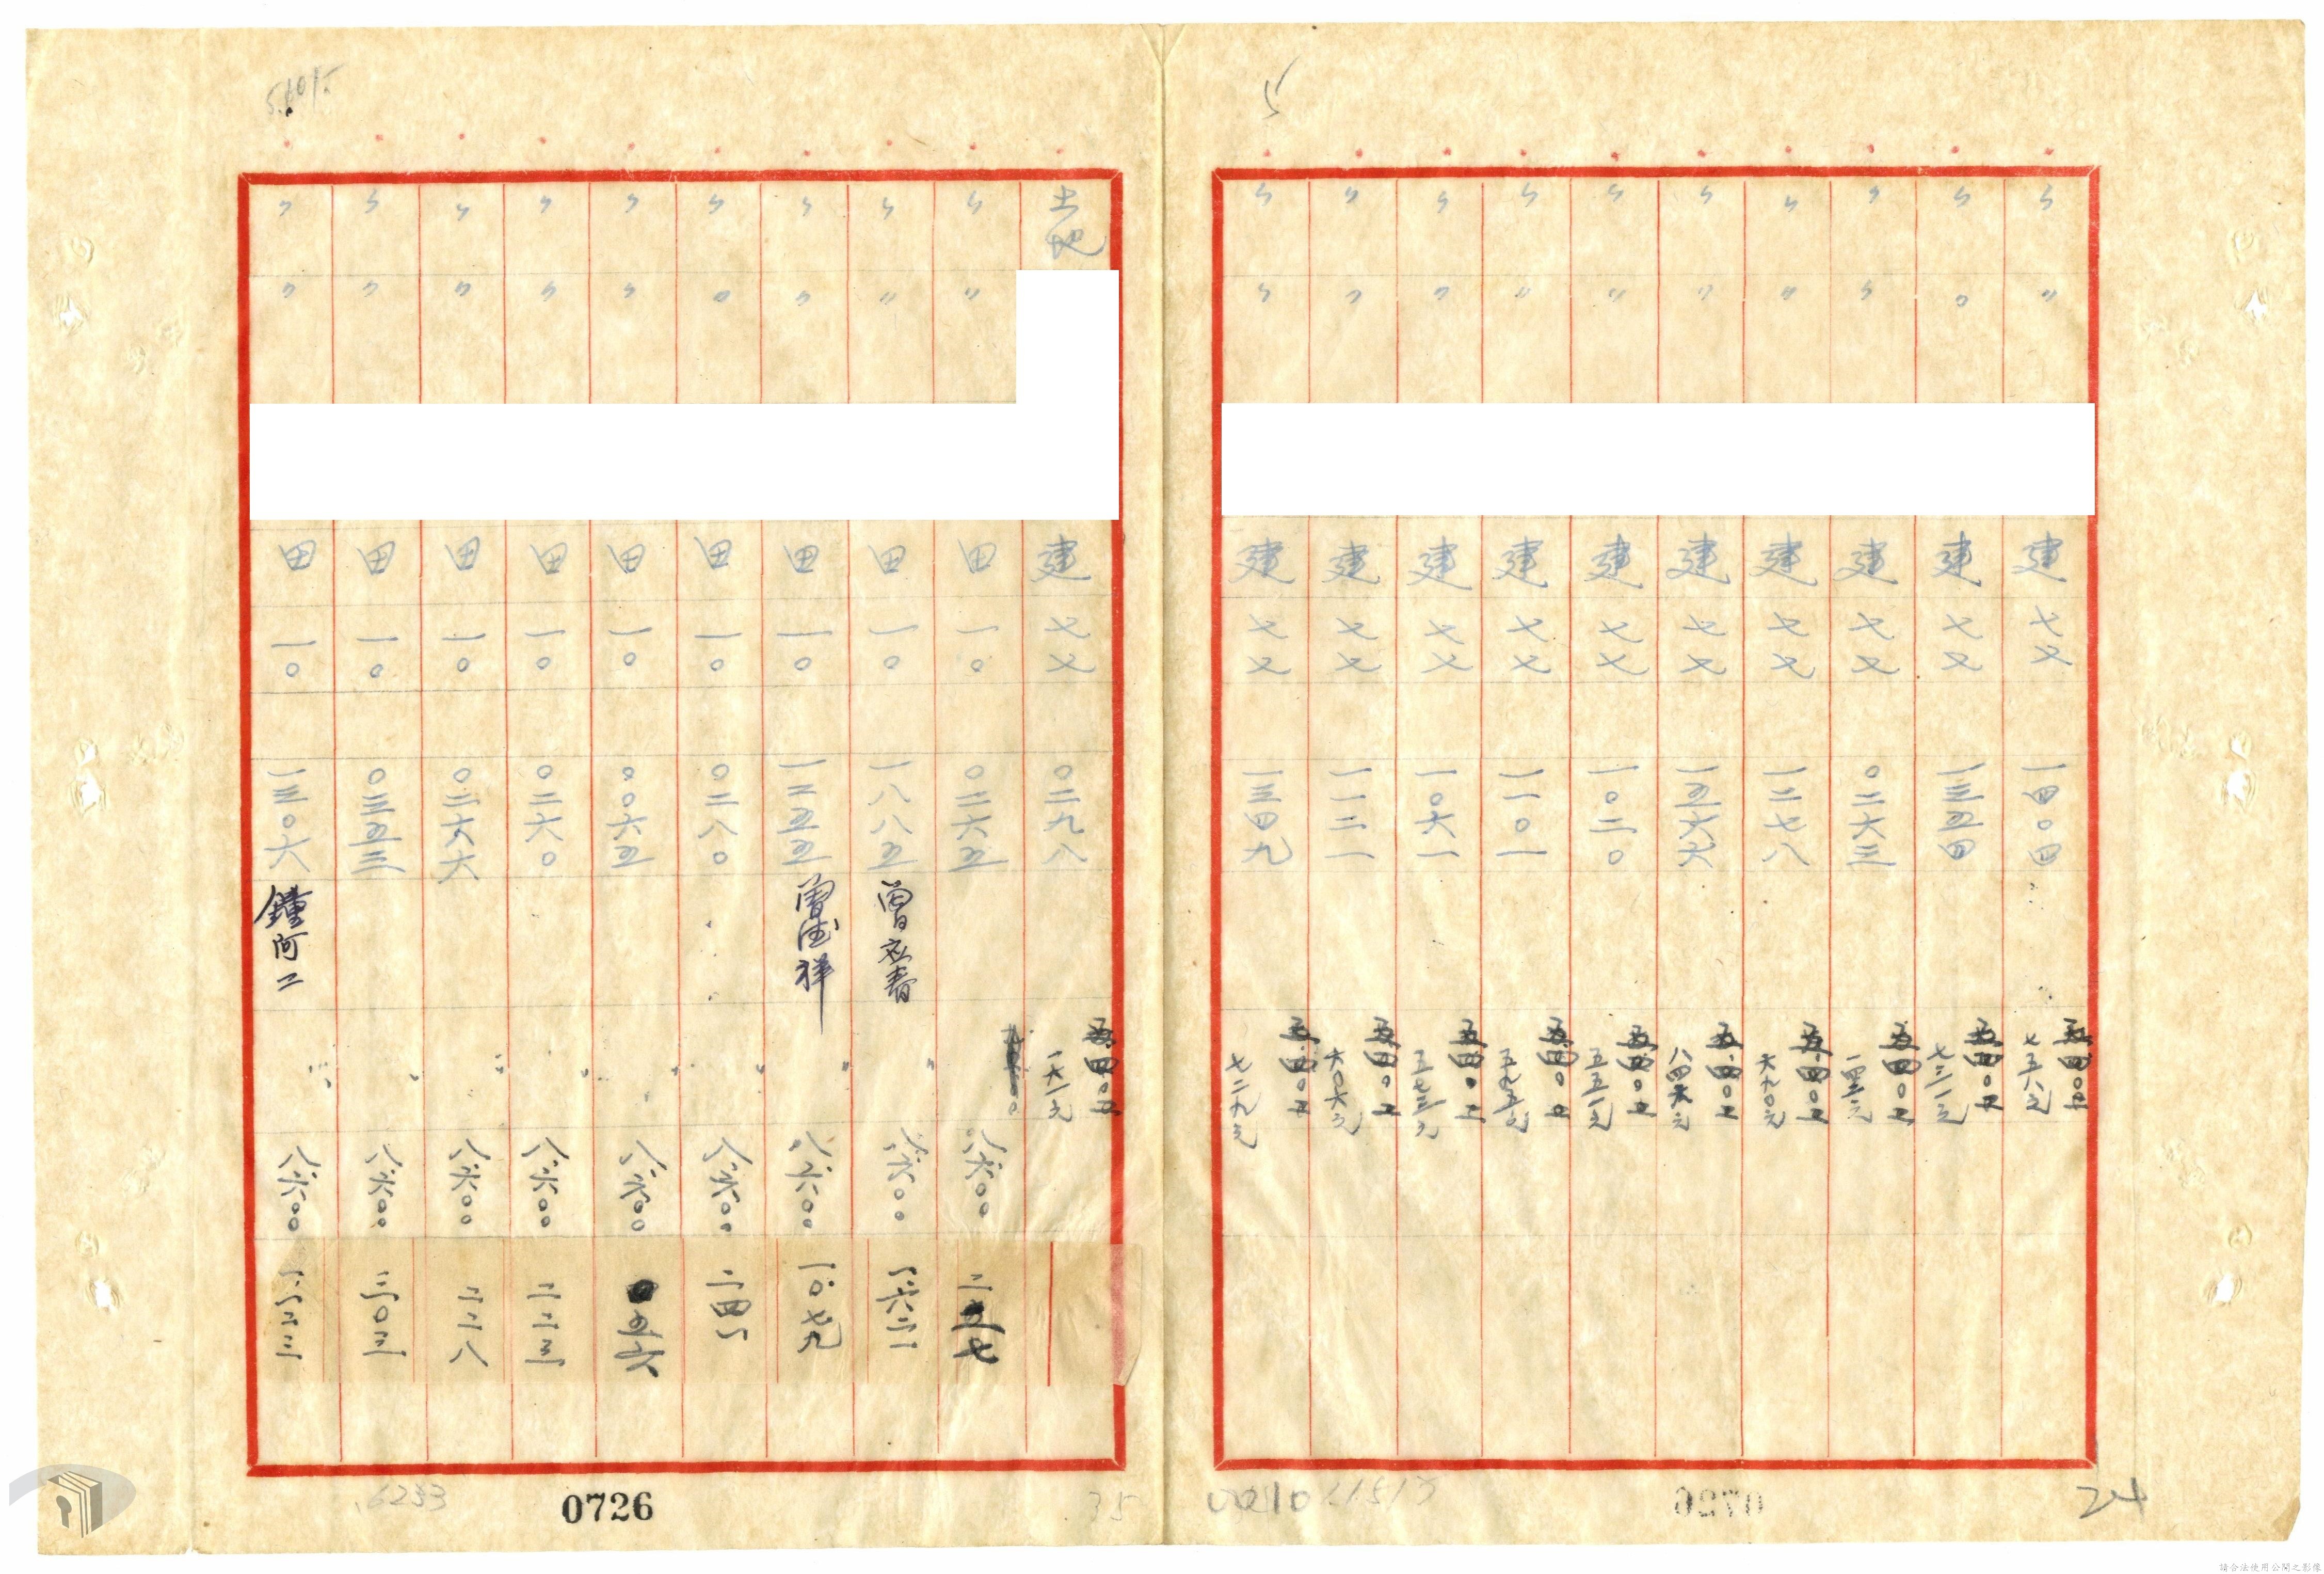 〃 〃 建 七七 一四〇四 五.四〇五 七五八元
〃 〃 建 七七 一三五四 五.四〇五 七三一元
〃 〃 建 七七 〇二六三 五.四〇五 一四二元
〃 〃 建 七七 一二七八 五.四〇五 六九〇元
〃 〃 建 七七 一五六六 五.四〇五 八四六元
〃 〃 建 七七 一〇二〇 五.四〇五 五五一元
〃 〃 建 七七 一一〇一 五.四〇五 五九五元
〃 〃 建 七七 一〇六一 五.四〇五 五七三元
〃 〃 建 七七 一一二一 五.四〇五 六〇六元
〃 〃 建 七七 一三四九 五.四〇五 七二九元
5
24
0726
土地 建 七七 〇二九八 五.四〇五 一六一元
〃 〃 田 一〇 〇二六五 八.六〇〇 二五七
〃 〃 田 一〇 一八八五 曾 春 〃 八.六〇〇 一.六二一
〃 〃 田 一〇 一二五五 曾 祥 〃 八.六〇〇 一.〇七九
〃 〃 田 一〇 〇二八〇 〃 八.六〇〇 二四一
〃 〃 田 一〇 〇〇六五 〃 八.六〇〇 五六
〃 〃 田 一〇 〇二六〇 〃 八.六〇〇 二二三
〃 〃 田 一〇 〇二六六 〃 八.六〇〇 二二八
〃 〃 田 一〇 〇三五三 八.六〇〇 三〇三
〃 〃 田 一〇 一三〇六 鐘阿二 〃 八.六〇〇 一.一二三
35
0726
6233
請合法使用公開之影像